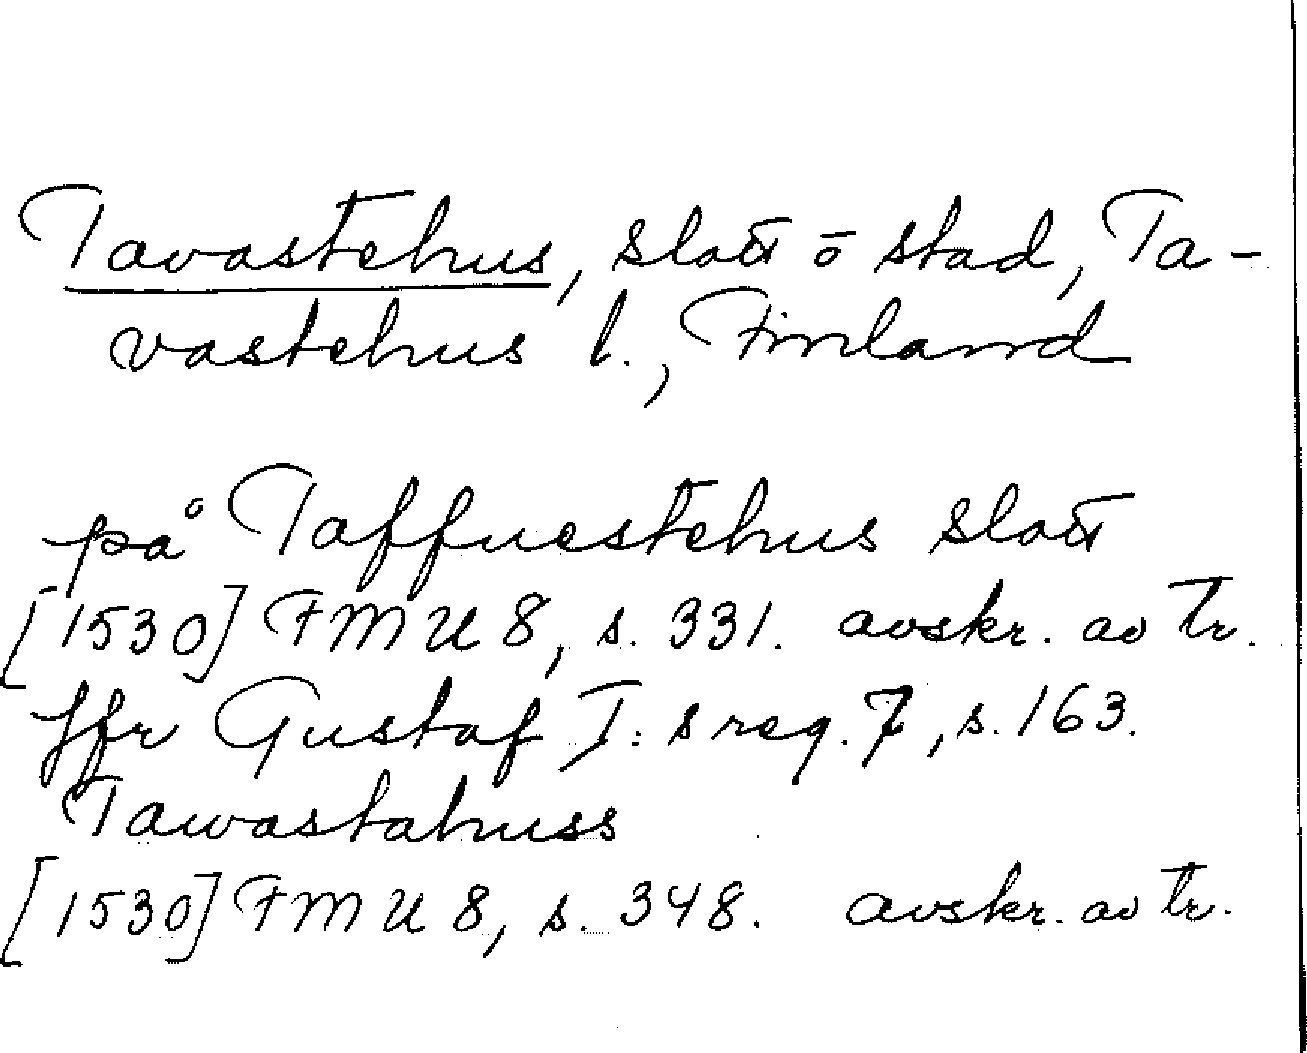 Tavastehus, slott o stad, Ta-
vastehus l., Finland
på Taffuestehus slott
[1530] FMU 8, s. 331. avskr. av tr.
Jfr Gustaf I:s reg. 7, s. 163.
Tawastahuss
[1530] FMU 8, s. 348. avskr. av tr.